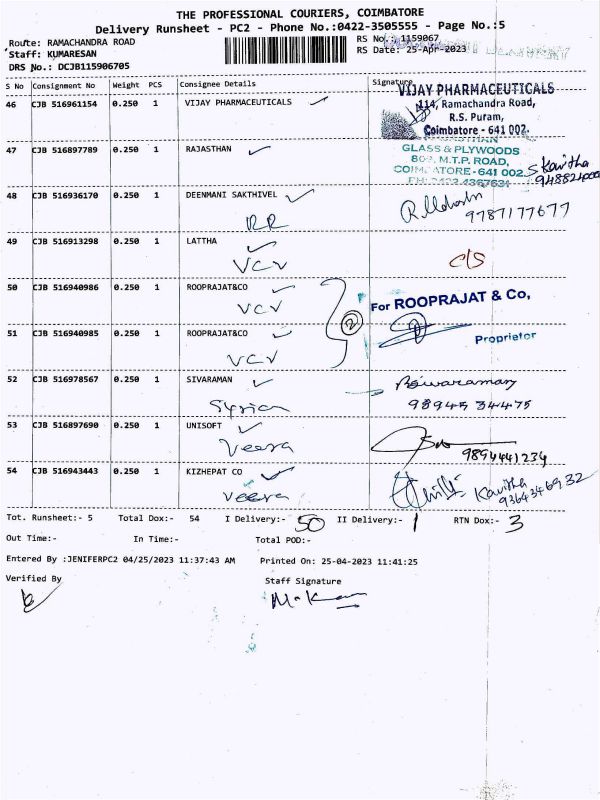 THE PROFESSIONAL COURIERS, COIMBATORE
Delivery Runsheet - PC2 - Phone No.:0422-3505555 - Page No.:5
Route: RAMACHANDRA ROAD
RS No.: 1159067
Staff: KUMARESAN
RS Date: 25-Apr-2023
DRS No.: DCJB115906705
S No Consignment No Weight PCS Consignee Details Signature
46 CJB 516961154 0.250 1 VIJAY PHARMACEUTICALS
VIJAY PHARMACEUTICALS
114, Ramachandra Road,
R.S. Puram,
Coimbatore - 641 002.
47 CJB 516897789 0.250 1 RAJASTHAN
GLASS & PLYWOODS
M.T.P. ROAD,
641 002.
Kavitha
48 CJB 516936170 0.250 1 DEENMANI SAKTHIVEL
RR
9787177677
49 CJB 516913298 0.250 1 LATTHA
VCV
C/S
50 CJB 516940986 0.250 1 ROOPRAJAT&CO
VCV
2
For ROOPRAJAT & Co,
Proprietor
51 CJB 516940985 0.250 1 ROOPRAJAT&CO
VCV
52 CJB 516978567 0.250 1 SIVARAMAN
Syrian
98945 34475
53 CJB 516897690 0.250 1 UNISOFT
Veera
9894441234
54 CJB 516943443 0.250 1 KIZHEPAT CO
Veera
Kavitha
9364346932
Tot. Runsheet:- 5 Total Dox:- 54 I Delivery:- 50 II Delivery:- 1 RTN Dox:- 3
Out Time:- In Time:- Total POD:-
Entered By :JENIFERPC2 04/25/2023 11:37:43 AM Printed On: 25-04-2023 11:41:25
Verified By Staff Signature